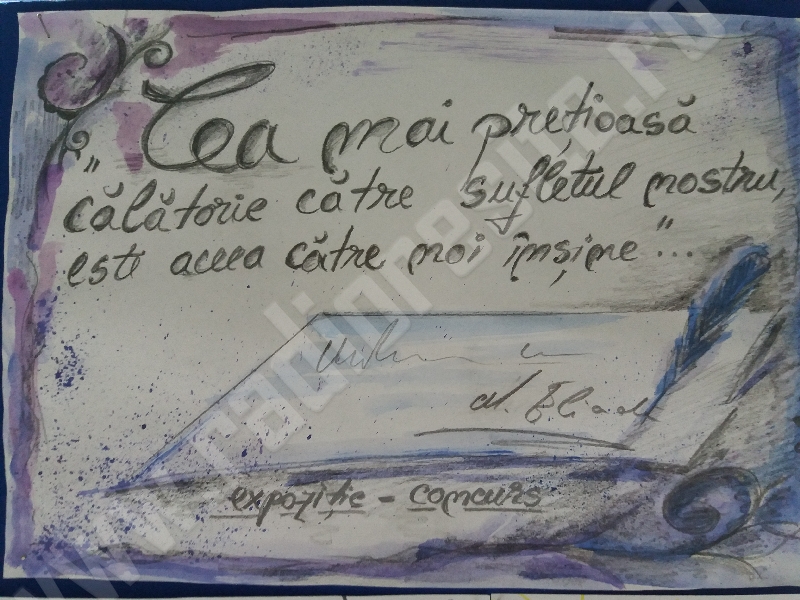 „Cea mai prețioasă
călătorie către sufletul nostru,
este aceea către noi înșine"...
M. Eliade
expoziție - concurs
www.radioresita.ro